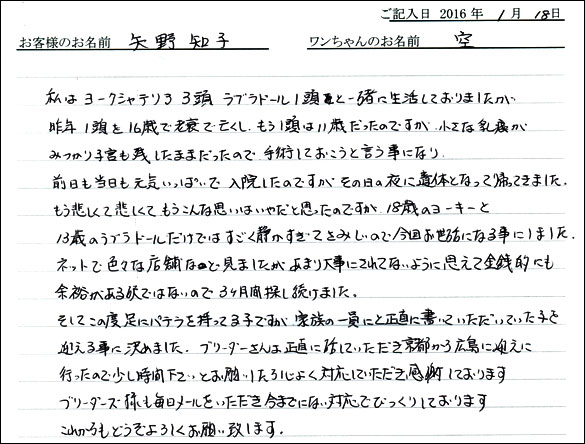 ご記入日 2016 年 1 月 18日
お客様のお名前 矢野 知子 ワンちゃんのお名前 空
私はヨークシャテリヨ 3頭 ラブラドール1頭と一緒に生活しておりましたが
昨年1頭を16歳で老衰で亡くし、もう1頭は11歳だったのですが、小さな乳癌が
みつかり子宮も残したままだったので手術しておこうと言う事になり
前日も当日も元気いっぱいで入院したのですが、その日の夜に遺体となって帰ってきました。
もう悲しくて悲しくてもうこんな思いはいやだと思ったのですが、18歳のヨーキーと
13歳のラブラドールだけではすごく静かすぎてさみしいので今回お世話になる事にしました。
ネットで色々な店舗など見ましたがあまり大事にされてないように思えて金銭的にも
余裕がある状ではないので3ヶ月間探し続けました。
そしてこの度足にパテラを持ってる子ですが家族の一員にと正直に書いていただいていた子を
迎える事に決めました。ブリーダーさんは正直に話していただき京都から広島に迎えに
行ったので少し時間下さいとお願いしたら心よく対応していただき感謝しております
ブリーダーズ様も毎日メールをいただき今までにない対応でびっくりしております
これからもどうぞよろしくお願い致します。